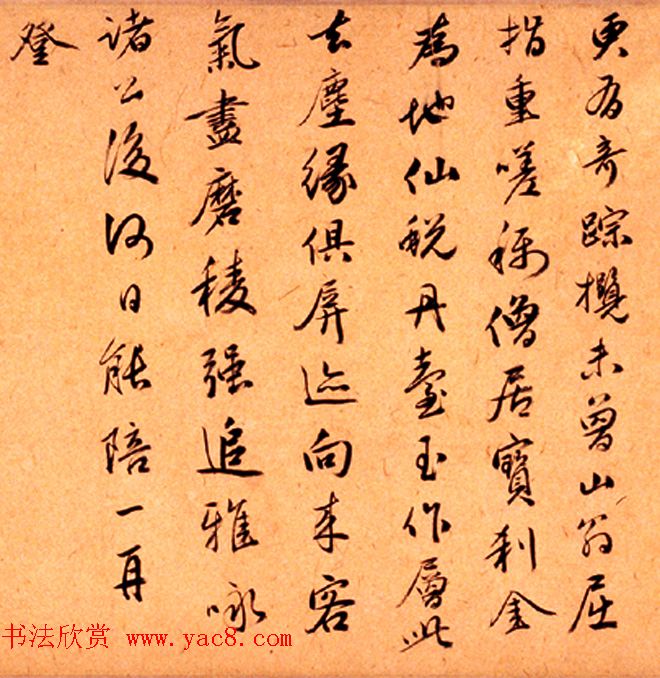 更为奇踪攬未曾山翁屈
指重嗟称僧居寳刹金
為地仙蜕丹臺玉作層此
去塵緣俱屏迹向来客
氣盡磨稜强追雅咏
諸公後何日能陪一再
登
书法欣赏 www.yac8.com